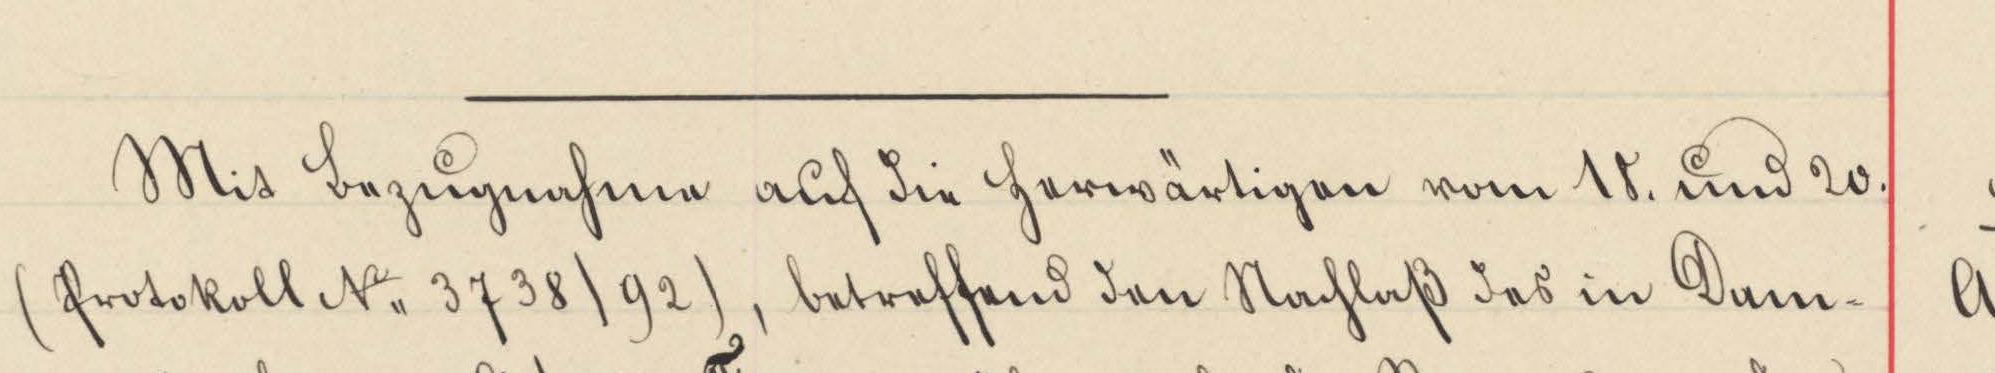 Mit Bezugnahme auf die Herwärtigen vom 18. und 20.
(Protokoll No. 3738/92), betreffend den Nachlaß des in Dam-